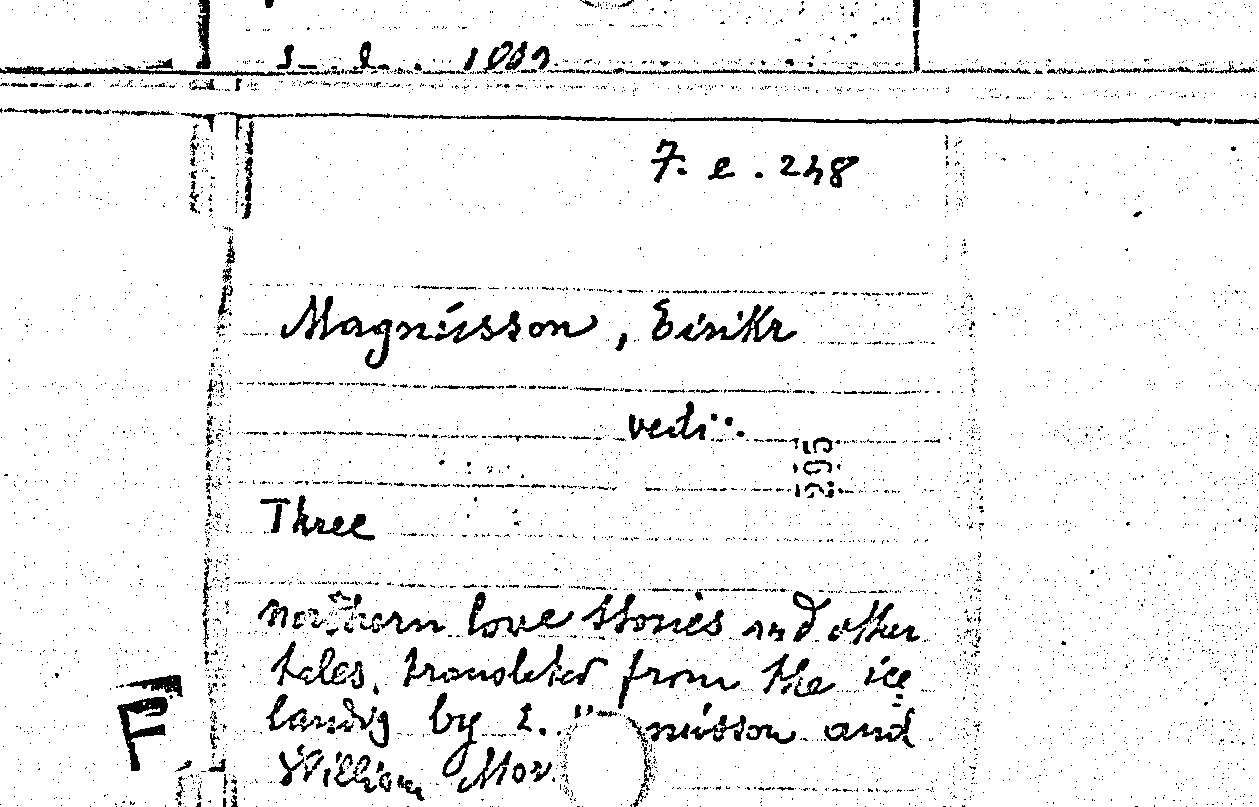 7. e. 248
Magnússon, Eirikr
vedi:
295
Three
northern love stories and other
tales, translated from the ice
landig by E. M nússon and
William Mor
F